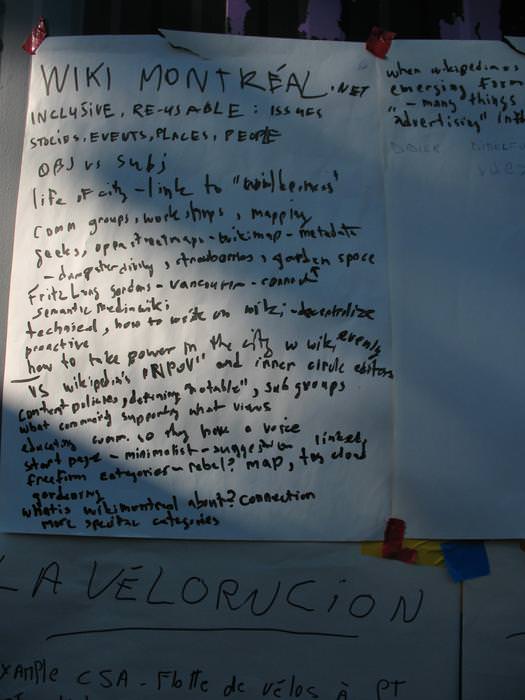 WIKI MONTRÉAL.NET
INCLUSIVE, RE-USABLE: ISSUES
STORIES, EVENTS, PLACES, PEOPLE
OBJ vs Subj
life of city - link to
Comm groups, workshops, mapping
geeks, openstreetmaps - wikimap - metadata
- dumpster diving, strawberries, garden space
Fritz Lang gardens - vancouver - connect
semantic mediawiki
technical, how to write on wiki - decentralize
proactive
how to take power in the city w wiki, events
VS wikipedia's "NPOV" and inner circle editors
content policies, defining "notable", sub groups
what community supporting what views
educating comm. so they have a voice
start page - minimalist - suggestion links
freeform categories - rebel? map, tag cloud
gardening
what is wikimontreal about? connection
more specific categories
when wikipedia was
emerging form
" - many things
"advertising" in
LA VÉLORUCION
xample CSA - Flotte de vélos à PT